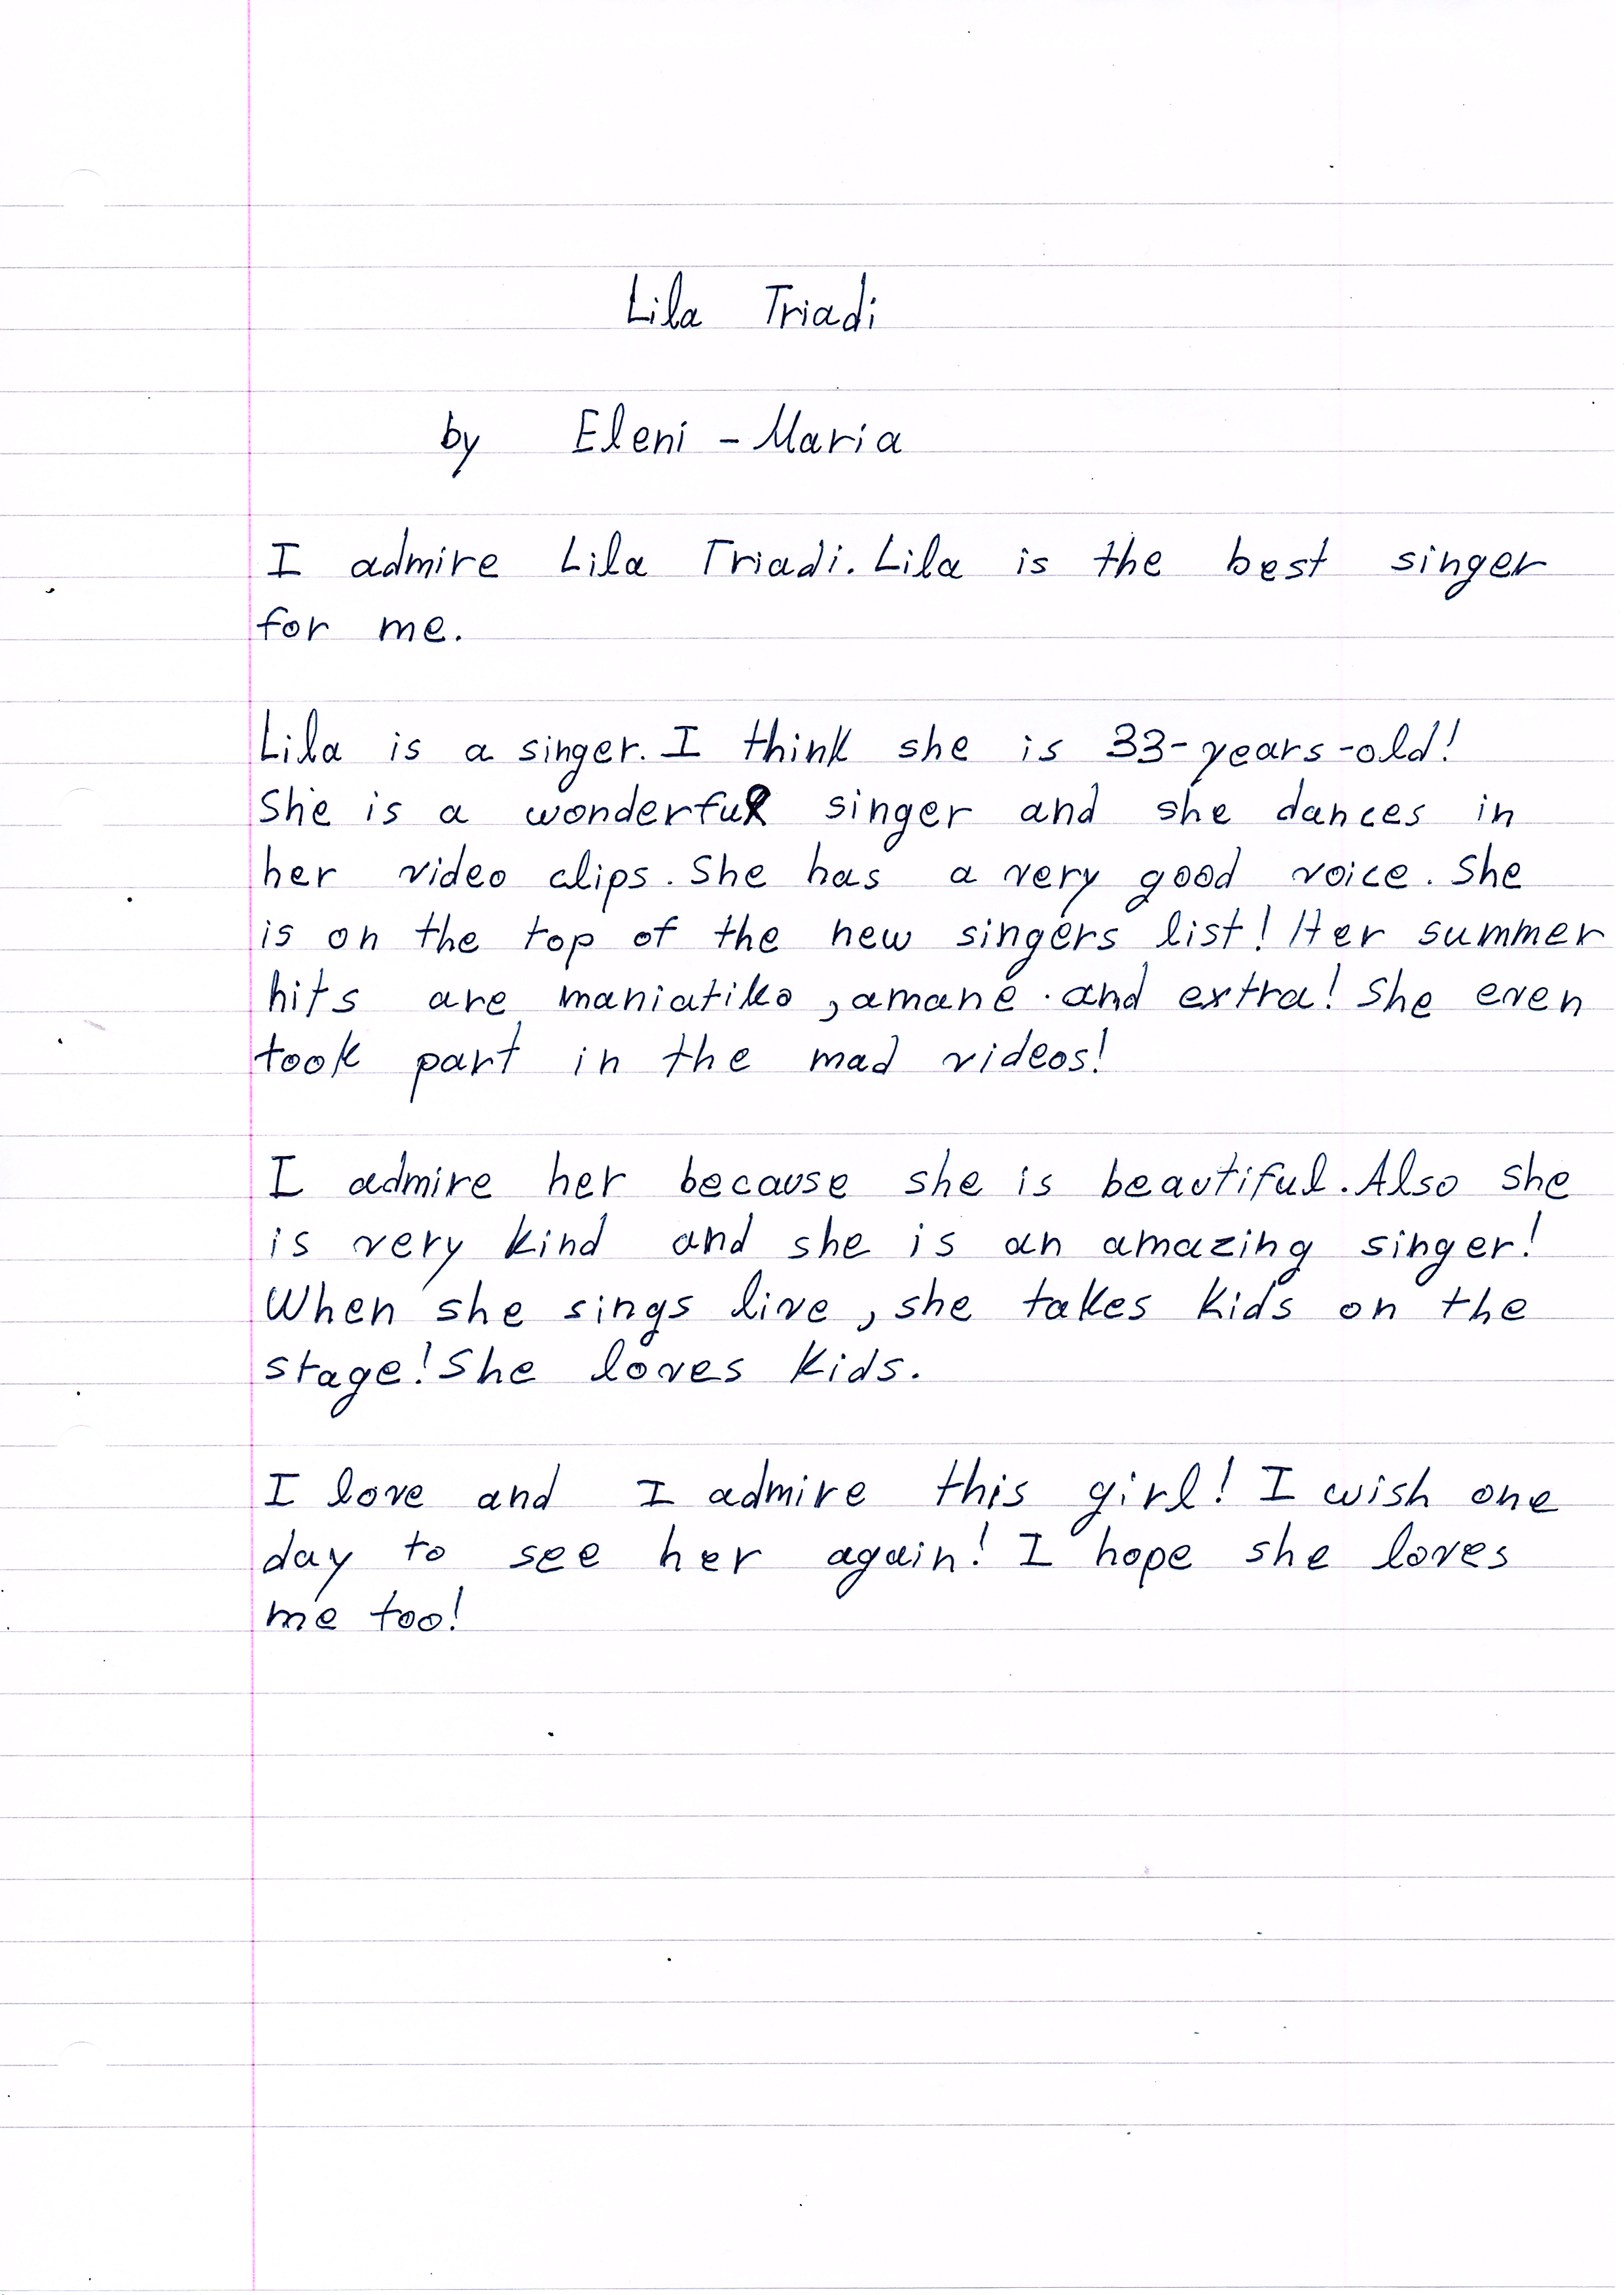 Lila Triadi
by Eleni - Maria
I admire Lila Triadi. Lila is the best singer
for me.
Lila is a singer. I think she is 33-years-old!
She is a wonderful singer and she dances in
her video clips. She has a very good voice. She
is on the top of the new singers list! Her summer
hits are maniatiko, amane and extra! She even
took part in the mad videos!
I admire her because she is beautiful. Also she
is very kind and she is an amazing singer!
When she sings live, she takes kids on the
stage! She loves kids.
I love and I admire this girl! I wish one
day to see her again! I hope she loves
me too!